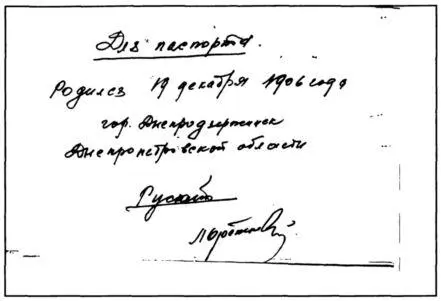 Для паспорта.
Родился 19 декабря 1906 года
гор. Днепродзержинск
Днепропетровской области